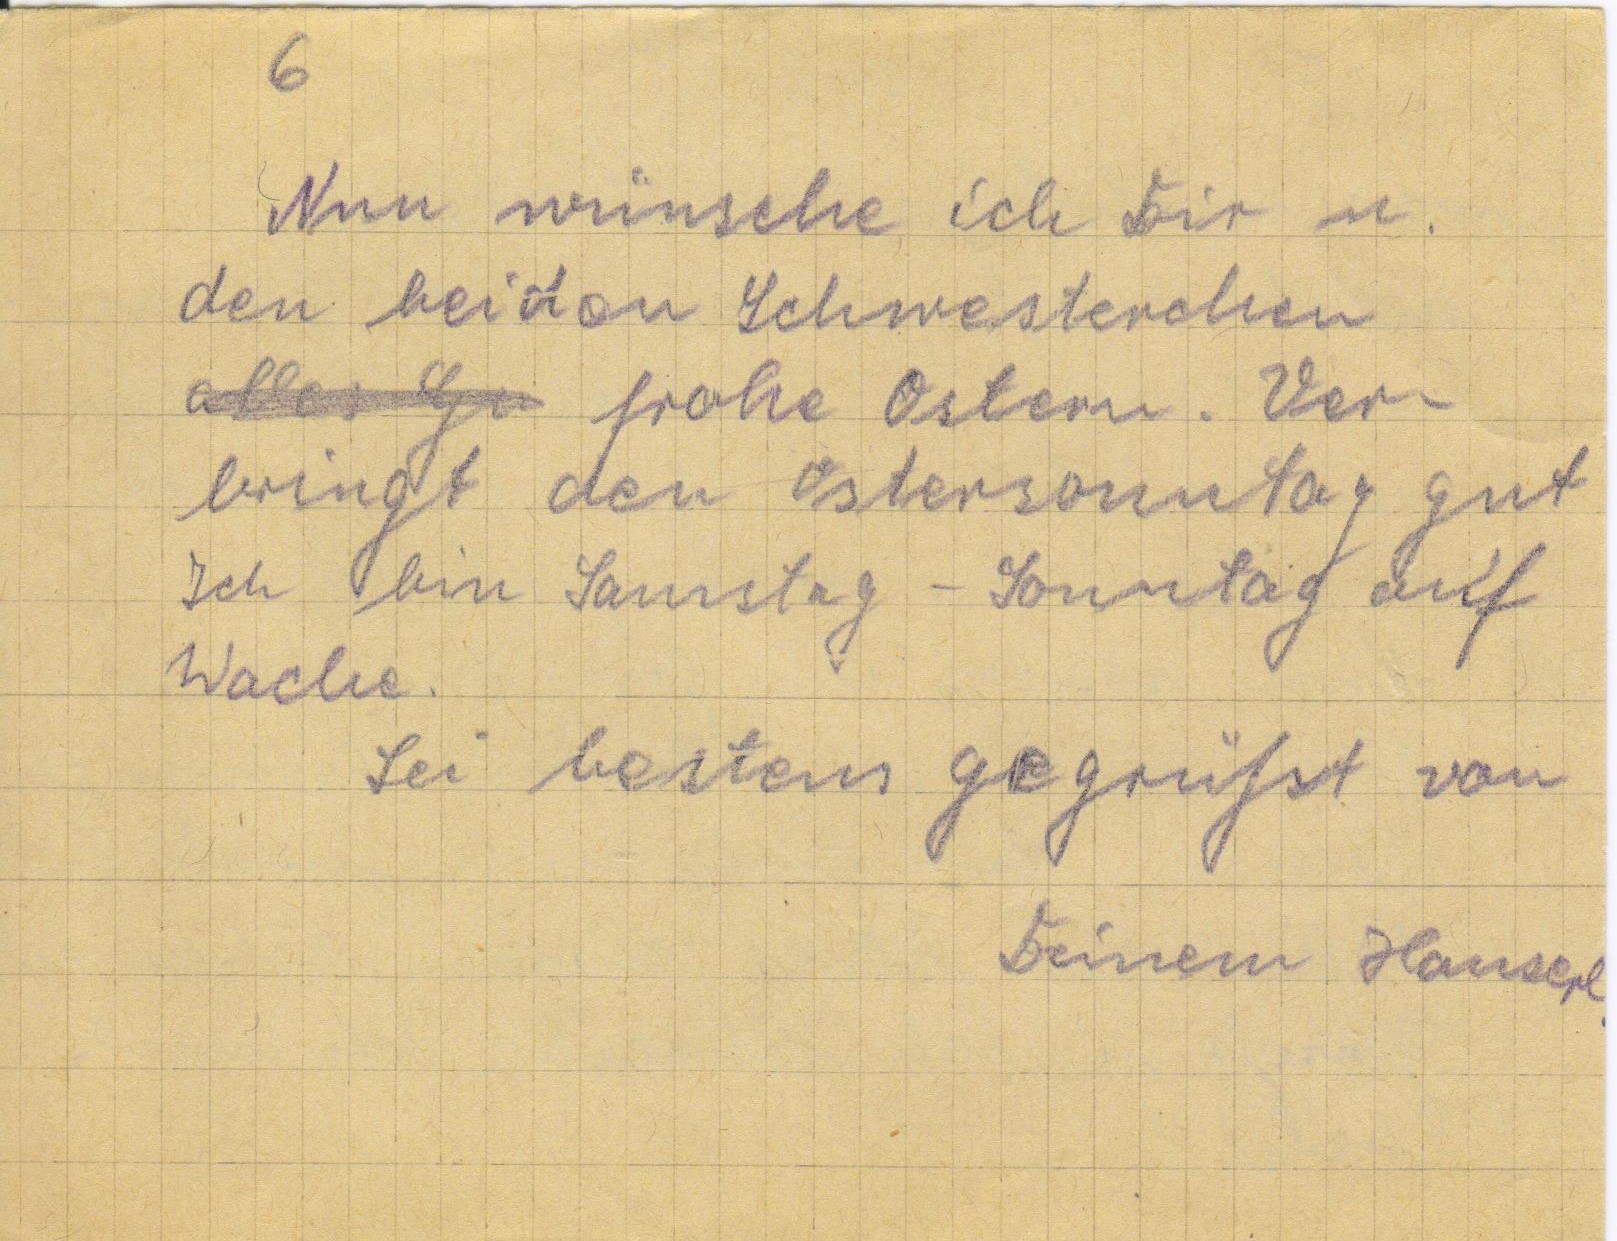 6
Nun wünsche ich Dir u.
den beiden Schwesterchen
alles Gu frohe Ostern. Ver-
bringt den Ostersonntag gut
Ich bin Samstag - Sonntag auf
Wache.
Sei bestens gegrüßt von
Deinem Hanserl.